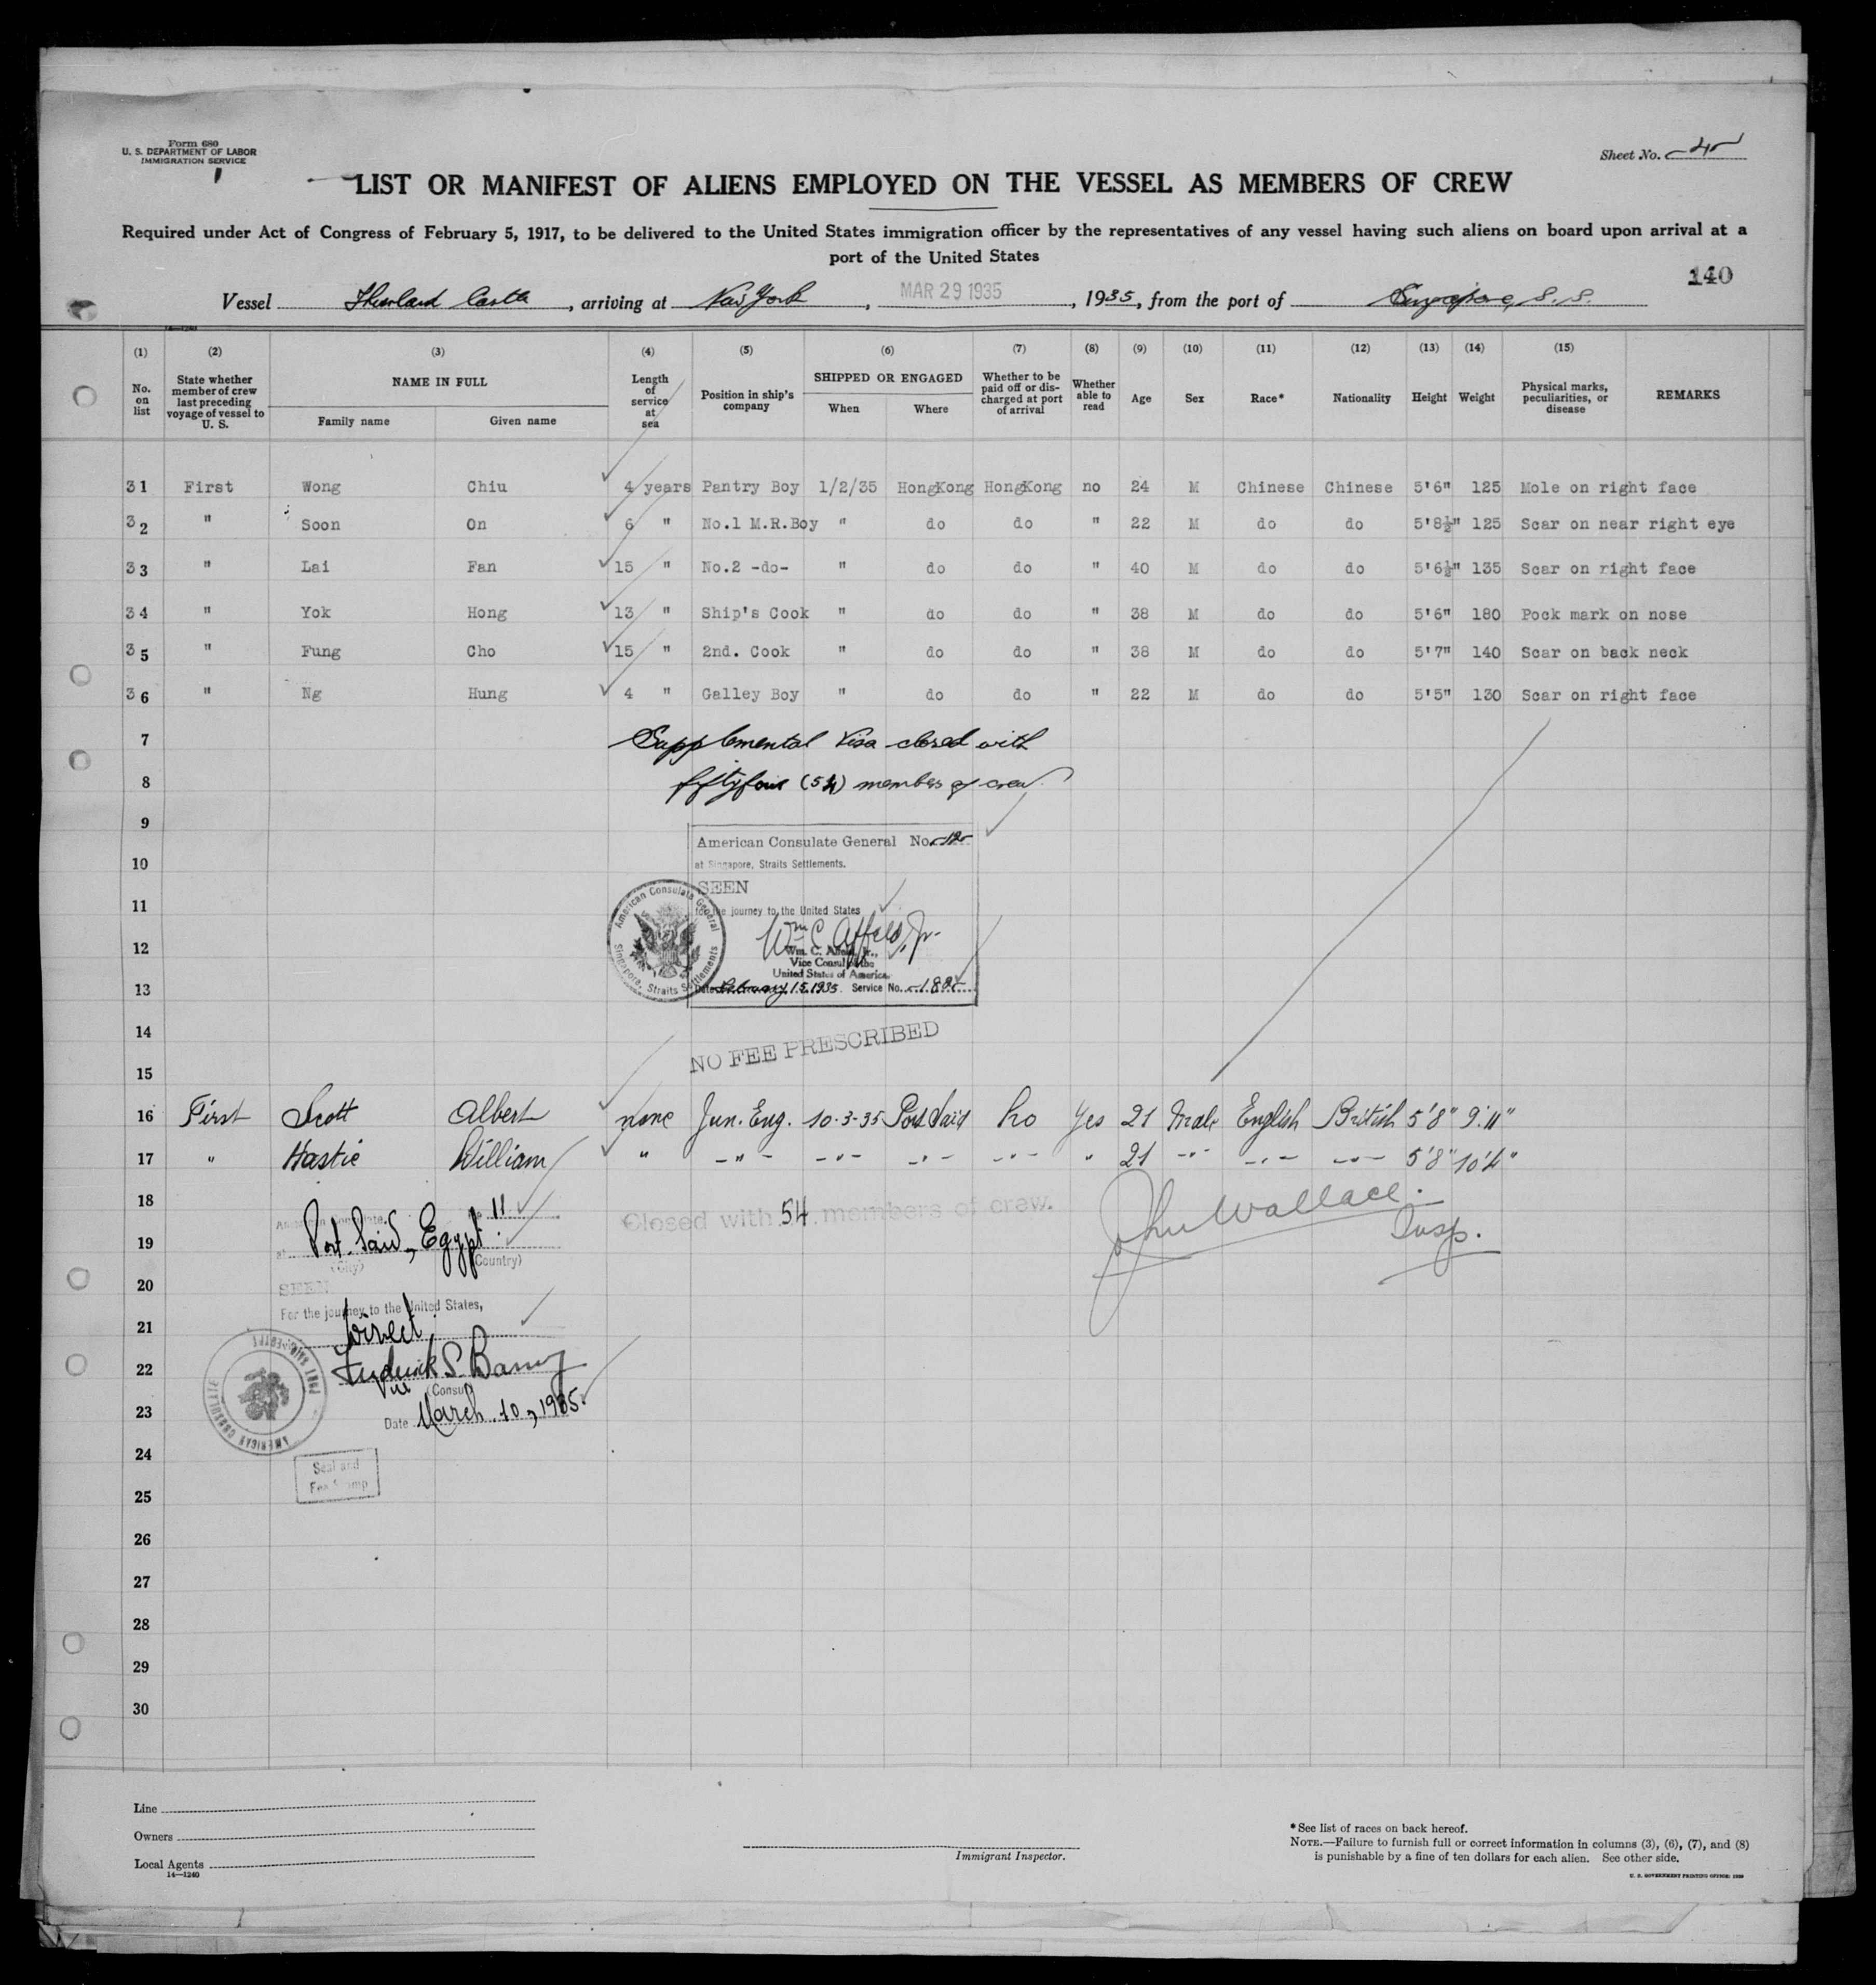 Form 680
U. S. DEPARTMENT OF LABOR
IMMIGRATION SERVICE
Sheet No. 4
LIST OR MANIFEST OF ALIENS EMPLOYED ON THE VESSEL AS MEMBERS OF CREW
Required under Act of Congress of February 5, 1917, to be delivered to the United States immigration officer by the representatives of any vessel having such aliens on board upon arrival at a
port of the United States
140
Vessel Castle, arriving at New York, MAR 29 1935, 1935, from the port of Singapore, S. S.
(1) (2) (3) (4) (5) (6) (7) (8) (9) (10) (11) (12) (13) (14) (15)
No. on list State whether member of crew last preceding voyage of vessel to U. S. NAME IN FULL Family name Given name Length of service at sea Position in ship's company SHIPPED OR ENGAGED When Where Whether to be paid off or discharged at port of arrival Whether able to read Age Sex Race* Nationality Height Weight Physical marks, peculiarities, or disease REMARKS
31 First Wong Chiu 4 years Pantry Boy 1/2/35 HongKong HongKong no 24 M Chinese Chinese 5'6" 125 Mole on right face
32 " Soon On 6 " No.1 M.R.Boy " do do " 22 M do do 5'8½" 125 Scar on near right eye
33 " Lai Fan 15 " No.2 -do- " do do " 40 M do do 5'6½" 135 Scar on right face
34 " Yok Hong 13 " Ship's Cook " do do " 38 M do do 5'6" 180 Pock mark on nose
35 " Fung Cho 15 " 2nd. Cook " do do " 38 M do do 5'7" 140 Scar on back neck
36 " Ng Hung 4 " Galley Boy " do do " 22 M do do 5'5" 130 Scar on right face
7 Supplemental Visa closed with
8 fiftyfour (54) members of crew.
9
American Consulate General No. 12
10
at Singapore, Straits Settlements.
SEEN
11
for the journey to the United States
American Consulate General Singapore, Straits Settlements
12
Wm. C. Affeld, Jr.
Wm. C. Affeld, Jr.,
Vice Consul of the
United States of America.
13
Date February 15, 1935. Service No. 188
14
NO FEE PRESCRIBED
15
16 First Scott Albert none Jun. Eng. 10-3-35 Port Said no Yes 21 Male English British 5'8" 9'.11"
17 " Hastie William " -"- -"- -"- -"- " 21 -"- -"- -"- 5'8" 10'4"
18
American Consulate No. 11
Closed with 54 members of crew.
John Wallace.
Insp.
19
at Port Said, Egypt.
(City) (Country)
20
SEEN
For the journey to the United States,
21
Direct.
22
Frederick S. Barny
Vice Consul
23
Date March 10, 1935.
AMERICAN CONSULATE PORT SAID, EGYPT
24
Seal and
Fee Stamp
25
26
27
28
29
30
Line
Owners
Local Agents
14—1240
Immigrant Inspector.
*See list of races on back hereof.
NOTE.—Failure to furnish full or correct information in columns (3), (6), (7), and (8)
is punishable by a fine of ten dollars for each alien. See other side.
U. S. GOVERNMENT PRINTING OFFICE: